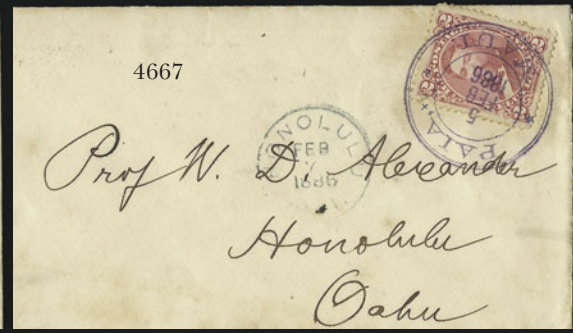 4667
PAIA, MAUI
FEB
5
1886
2
HONOLULU
FEB
1886
Prof W. D. Alexander
Honolulu
Oahu